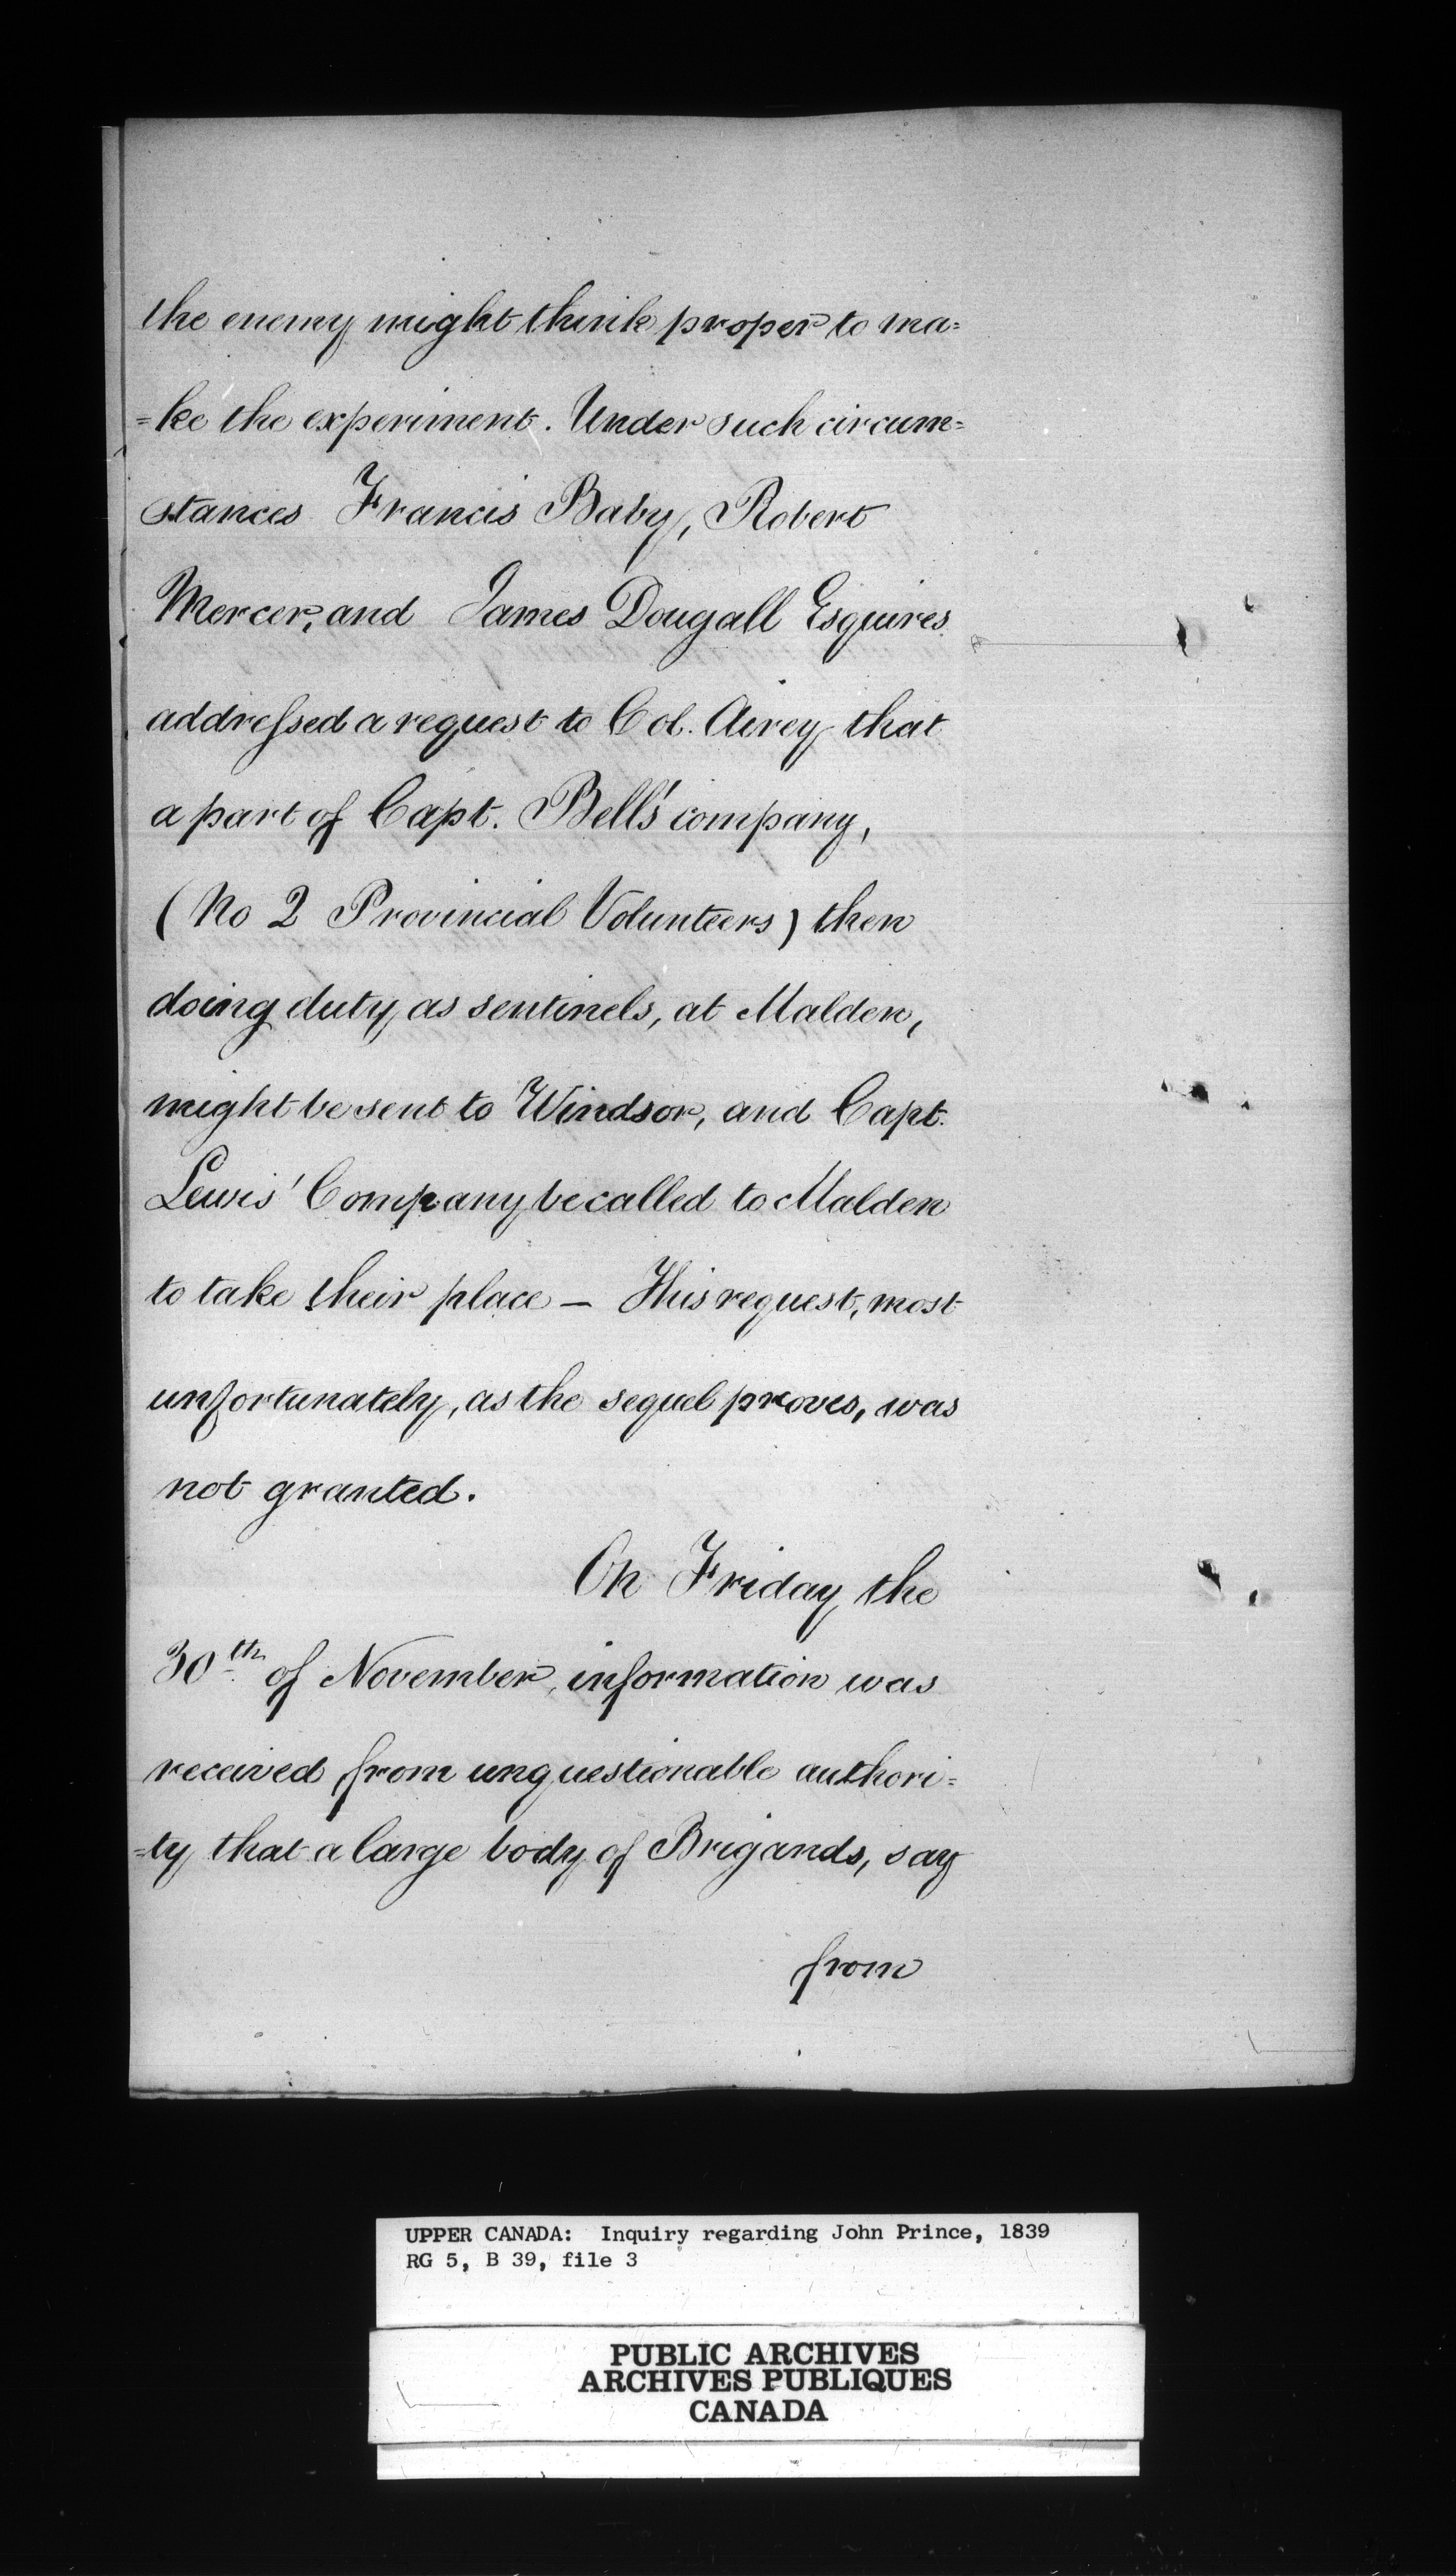 the enemy might think proper to ma=
=ke the experiment. Under such circum=
stances Francis Baby, Robert
Mercer, and James Dougall Esquires
addressed a request to Col. Airey that
a part of Capt. Bell's company,
(No 2 Provincial Volunteers) then
doing duty as sentinels, at Malden,
might be sent to Windsor, and Capt.
Lewis' Company be called to Malden
to take their place — This request, most
unfortunately, as the sequel proves, was
not granted.
On Friday the
30th of November, information was
received from unquestionable authori=
=ty that a large body of Brigands, say
from
UPPER CANADA: Inquiry regarding John Prince, 1839
RG 5, B 39, file 3
PUBLIC ARCHIVES
ARCHIVES PUBLIQUES
CANADA